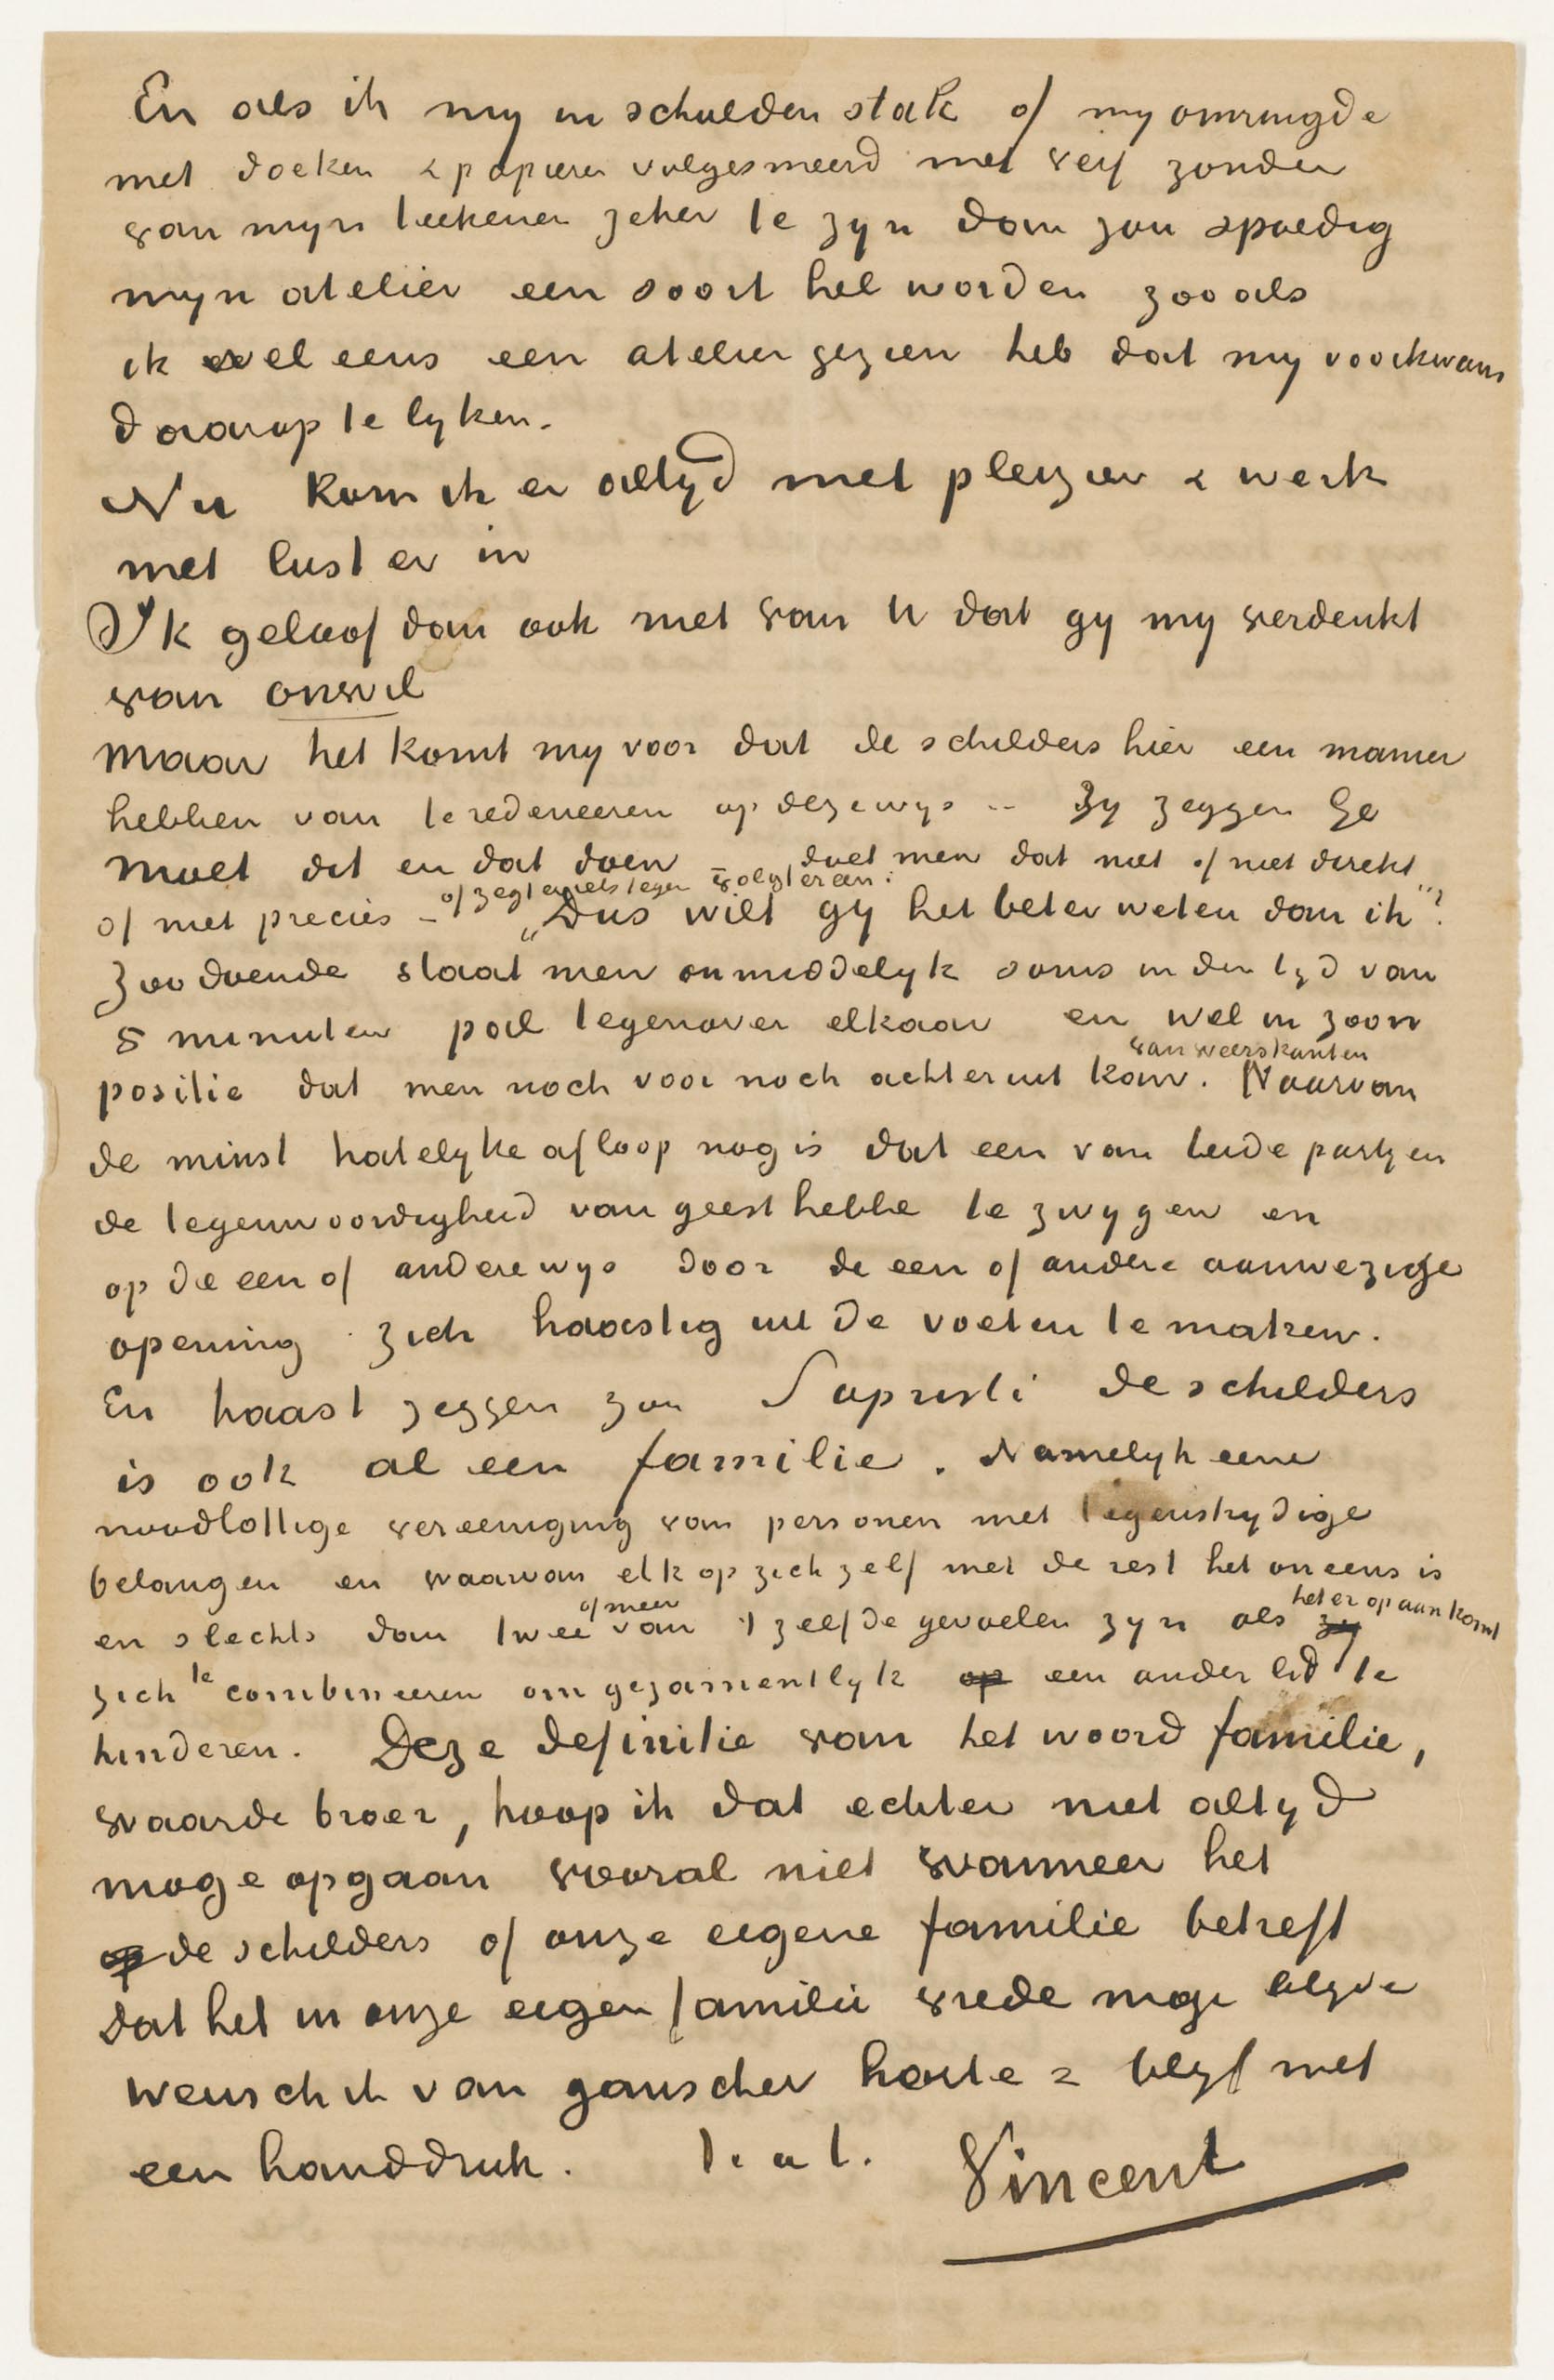 En als ik my in schulden stak of my omringde
met doeken & papieren volgesmeerd met verf zonder
van myn teekenen zeker te zyn dan zou spoedig
myn atelier een soort hel worden zooals
ik wel eens een atelier gezien heb dat my voorkwam
daarop te lyken.
Nu kom ik er altyd met pleizier & werk
met lust er in
Ik geloof dan ook niet van U dat gy my verdenkt
van onwil
Maar het komt my voor dat de schilders hier een manier
hebben van te redeneeren op deze wys -- Zy zeggen Ge
moet dit en dat doen – doet men dat niet of niet direkt
of niet precies – of zegt er iets tegen volgt er een: „Dus wilt gy het beter weten dan ik”?
Zoodoende staat men onmiddelyk soms in den tyd van
5 minuten pal tegenover elkaar en wel in zoon
positie dat men noch voor noch achteruit kan. van weerskanten Waarvan
de minst hatelyke afloop nog is dat een van beide partyen
de tegenwoordigheid van geest hebbe te zwygen en
op die een of andere wys door de een of andere aanwezige
opening zich haastig uit de voeten te maken.
En haast zeggen zou Sapristi de schilders
is ook al een familie. Namelyk eene
noodlottige vereeniging van personen met tegenstrydige
belangen en waarvan elk op zich zelf met de rest het oneens is
en slechts dan twee of meer van 't zelfde gevoelen zyn als zy het er op aan komt
zich te combineeren om gezamentlyk op een ander lid te
hinderen. Deze definitie van het woord familie,
waarde broer, hoop ik dat echter niet altyd
moge opgaan vooral niet wanneer het
op de schilders of onze eigene familie betreft
dat het in onze eigen familie vrede moge blyve
wensch ik van ganscher harte & blyf met
een handdruk. t. à t. Vincent